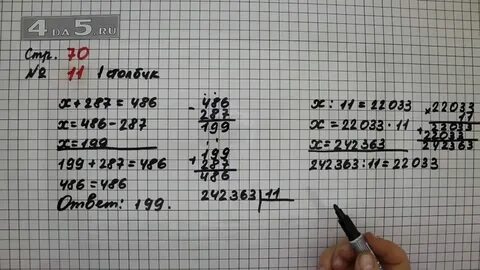 4 DA 5.RU
Стр. 70
№ 11 1 столбик
x + 287 = 486
x = 486 - 287
x = 199
199 + 287 = 486
486 = 486
Ответ: 199.
- 486
287
199
+ 199
287
486
242363 | 11
x : 11 = 22033
x = 22033 · 11
x = 242363
242363 : 11 = 22033
× 22033
11
22033
+ 22033
242363